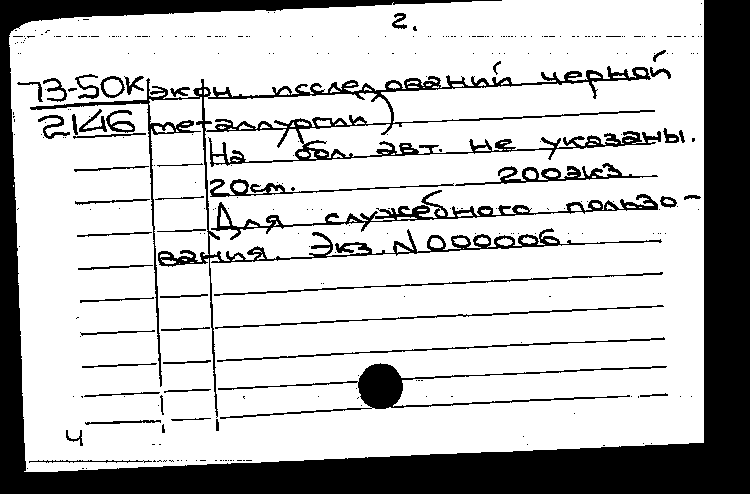 2.
73-50К экон. исследований черной
2146 металлургии).
На обл. авт. не указаны.
20см. 200экз.
Для служебного пользо-
вания. Экз. N 000006.
ч